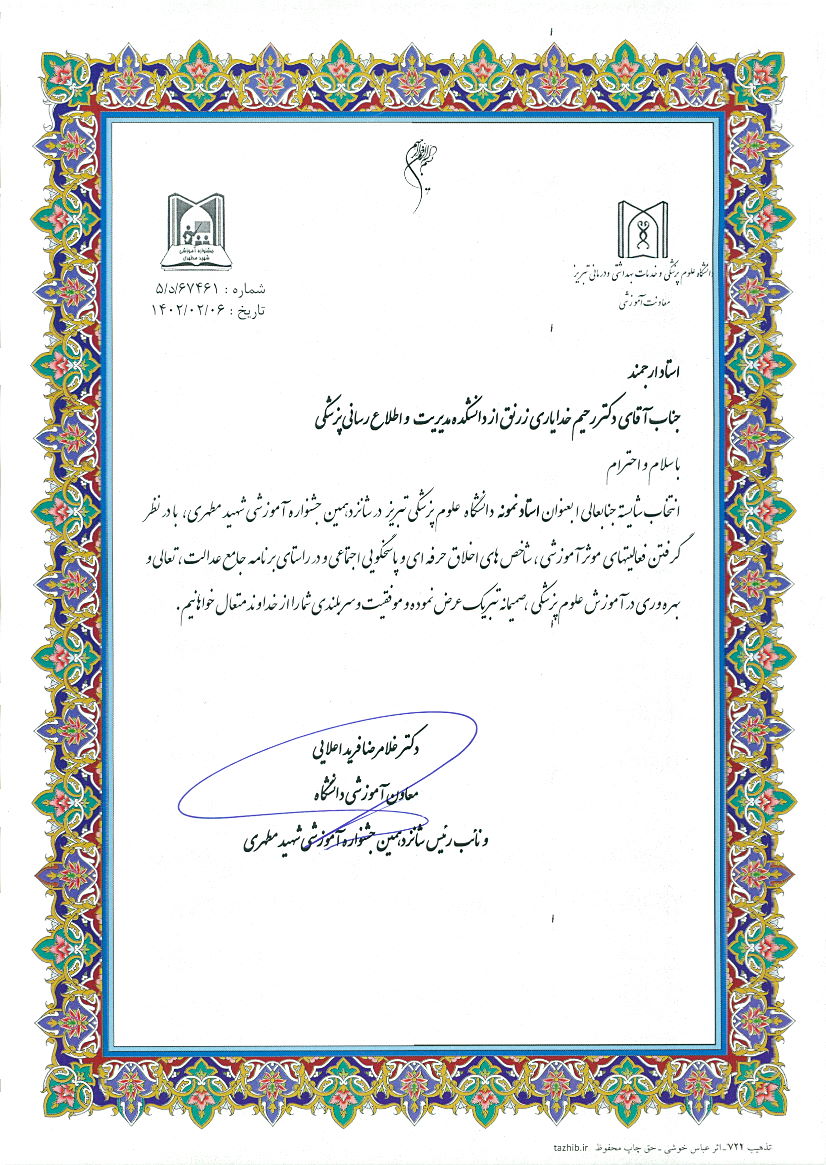 بسم الله الرحمن الرحیم
جشنواره آموزشی
شهید مطهری
دانشگاه علوم پزشکی و خدمات بهداشتی و درمانی تبریز
معاونت آموزشی
شماره : ۵/د/۶۷۴۶۱
تاریخ : ۱۴۰۲/۰۲/۰۶
استاد ارجمند
جناب آقای دکتر رحیم خدایاری زرنق از دانشکده مدیریت و اطلاع رسانی پزشکی
با سلام و احترام
انتخاب شایسته جنابعالی ابعنوان استاد نمونه دانشگاه علوم پزشکی تبریز در شانزدهمین جشنواره آموزشی شهید مطهری، با در نظر
گرفتن فعالیتهای موثر آموزشی ، شاخص های اخلاق حرفه ای و پاسخگویی اجتماعی و در راستای برنامه جامع عدالت، تعالی و
بهره وری در آموزش علوم پزشکی ،صمیمانه تبریک عرض نموده و موفقیت و سربلندی شما را از خداوند متعال خواهانیم .
دکتر غلامرضا فرید اعلایی
معاون آموزشی دانشگاه
و نائب رئیس شانزدهمین جشنواره آموزشی شهید مطهری
تذهیب ۷۲۲ـ اثر عباس خوشی ـ حق چاپ محفوظ tazhib.ir